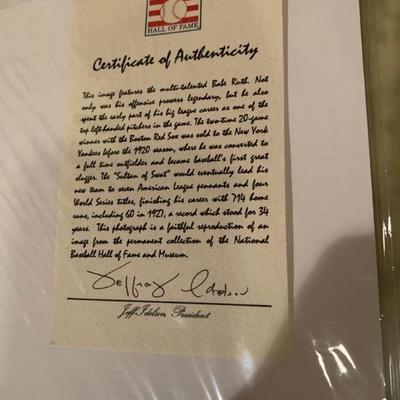 HALL OF FAME
Certificate of Authenticity
This image features the multi-talented Babe Ruth. Not
only was his offensive prowess legendary, but he also
spent the early part of his big league career as one of the
top left-handed pitchers in the game. The two-time 20-game
winner with the Boston Red Sox was sold to the New York
Yankees before the 1920 season, where he was converted to
a full time outfielder and became baseball's first great
slugger. The "Sultan of Swat" would eventually lead his
new team to seven American League pennants and four
World Series titles, finishing his career with 714 home
runs, including 60 in 1927, a record which stood for 34
years. This photograph is a faithful reproduction of an
image from the permanent collection of the National
Baseball Hall of Fame and Museum.
Jeffrey Idelson
Jeff Idelson President